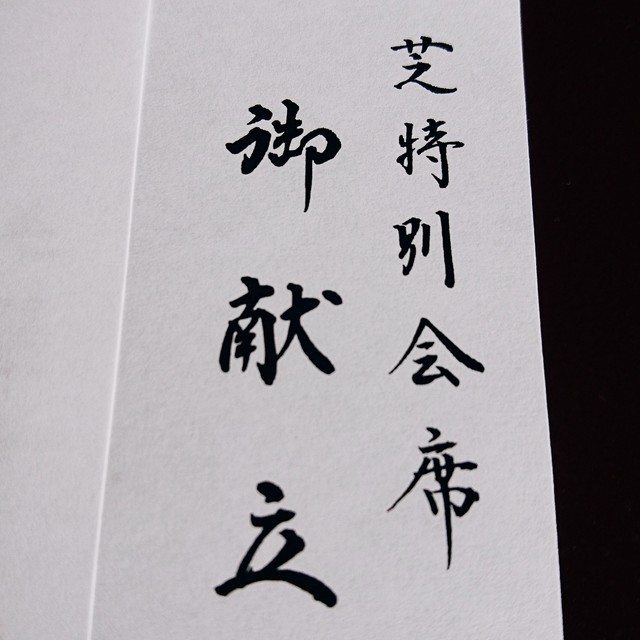 芝特別会席
御献立